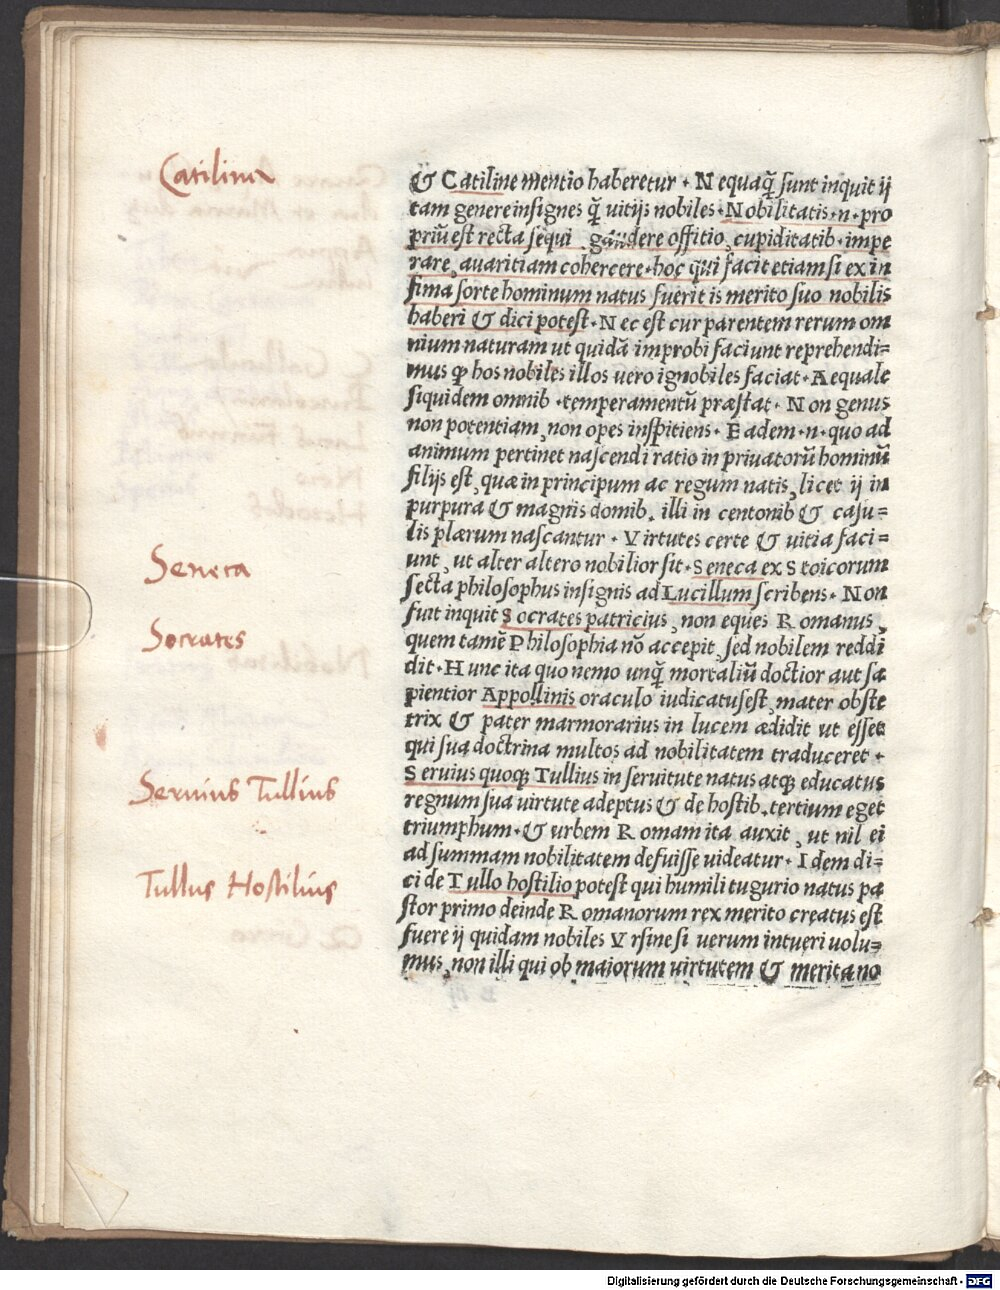 Catilina
& Catiline mentio haberetur · Nequaq̃ sunt inquit ij
tam genere insignes q̃ uitijs nobiles · Nobilitatis · n · pro
priũ est recta sequi gaudere offitio, cupiditatib · impe
rare, auaritiam cohercere · hoc qui facit etiam si ex in
fima sorte hominum natus fuerit is merito suo nobilis
haberi & dici potest · Nec est cur parentem rerum om
nium naturam ut quidã improbi faciunt reprehendi=
mus ꝙ hos nobiles illos uero ignobiles faciat · Aequale
siquidem omnib · temperamentũ præstat · Non genus
non potentiam, non opes inspitiens · Eadem · n · quo ad
animum pertinet nascendi ratio in priuatorũ hominũ
filijs est, quæ in principum ac regum natis, licet ij in
purpura & magnis domib. illi in centonib & casu=
lis plærum nascantur · Virtutes certe & uitia faci=
unt, ut alter altero nobilior sit · Seneca ex Stoicorum
Seneca
secta philosophus insignis ad Lucillum scribens · Non
fuit inquit Socrates patricius, non eques Romanus,
Socrates
quem tamẽ Philosophia nõ accepit, sed nobilem reddi
dit · Hunc ita quo nemo unq̃ mortaliũ doctior aut sa
pientior Appollinis oraculo iudicatus est, mater obste
trix & pater marmorarius in lucem ædidit ut esset
qui sua doctrina multos ad nobilitatem traduceret ·
Seruius quoqꝫ Tullius in seruitute natus atqꝫ educatus
Seruius Tullius
regnum sua uirtute adeptus & de hostib. tertium eget
triumphum · & urbem Romam ita auxit, ut nil ei
ad summam nobilitatem defuisse uideatur · Idem di=
ci de Tullo hostilio potest qui humili tugurio natus pa
Tullus Hostilius
stor primo deinde Romanorum rex merito creatus est
fuere ij quidam nobiles Vrsine si uerum intueri uolu=
mus, non illi qui ob maiorum uirtutem & merita no
Digitalisierung gefördert durch die Deutsche Forschungsgemeinschaft - DFG